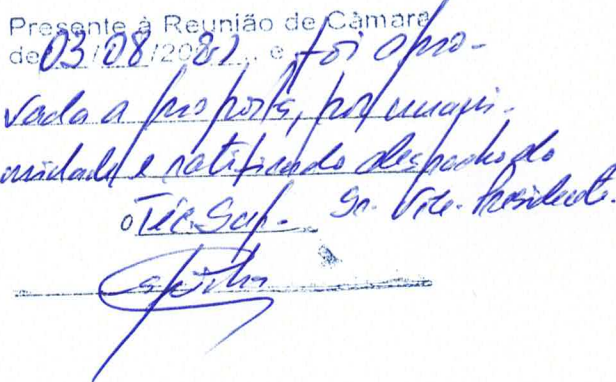 Presente à Reunião de Câmara
de 03/08/2021, e foi apro-
vada a proposta, por unani-
midade e ratificado despacho do
o Téc. Sup. Sr. Vice-Presidente.